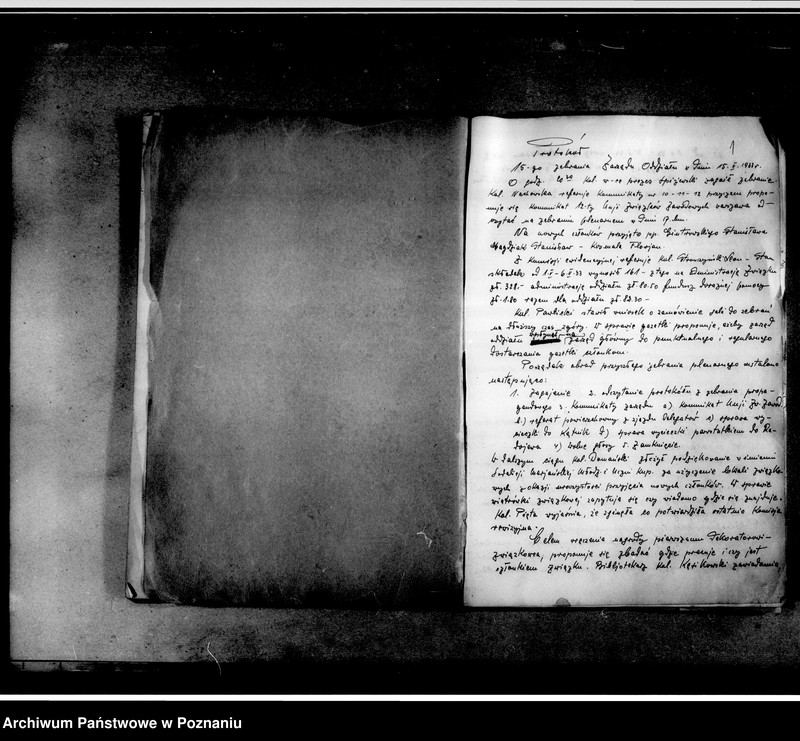 1
Protokół
15-go zebrania Zarządu Oddziału w dniu 15. 1933 r.
O godz. 20 kol. prezes zagaił zebranie.
Kol. referuje komunikaty nr 10 - 11 - 12 przyczem propo-
nuje się komunikat 12-ty Unji Związków Zawodowych
czytać na zebraniu plenarnem w dniu 17. bm.
Na nowych członków przyjęto pp. Stanisława
Stanisław - Kosmala Florjan.
Z Komisji ewidencyjnej referuje kol. Stan
składek od 1 - 6 33 wynosił 161.- złp. na Administrację Związku
zł. 328.- administrację oddziału zł. 80.50 fundusz doraźnej pomocy
zł. 1.80 razem dla oddziału zł.
Kol. Pawlicki stawia wniosek o zamówienie sali do zebrań
na dłuższy czas zgóry. W sprawie gazetki proponuje, ażeby zarząd
oddziału zarząd główny do punktualnego i regularnego
dostarczania gazetki członkom.
Porządek obrad przyszłego zebrania plenarnego ustalono
następująco:
1. Zagajenie 2. odczytanie protokółu z zebrania propa-
gandowego 3. Komunikaty zarządu a) komunikat Unji Zw. Zawod.
b.) referat z zjazdu delegatów c) sprawa wy-
cieczki do Kątnik d) sprawa wycieczki parostatkiem do Ra-
dojewa 4) wolne głosy 5. Zamknięcie.
W dalszym ciągu kol. Domański złożył podziękowanie w imieniu
Sodalicji Marjańskiej Młodz. i Uczni Kup. za użyczenie lokali związko-
wych z okazji uroczystości przyjęcia nowych członków. W sprawie
wiatrówki związkowej zapytuje się czy wiadomo gdzie się znajduje.
Kol. Pięta wyjaśnia, że zginęła co potwierdziła ostatnio Komisja
rewizyjna.
Celem wręczenia nagrody pierwszemu Dekoratorowi-
związkowca, proponuje się zbadać gdzie pracuje i czy jest
członkiem Związku. Bibljotekarz kol. zawiadamia,
Archiwum Państwowe w Poznaniu